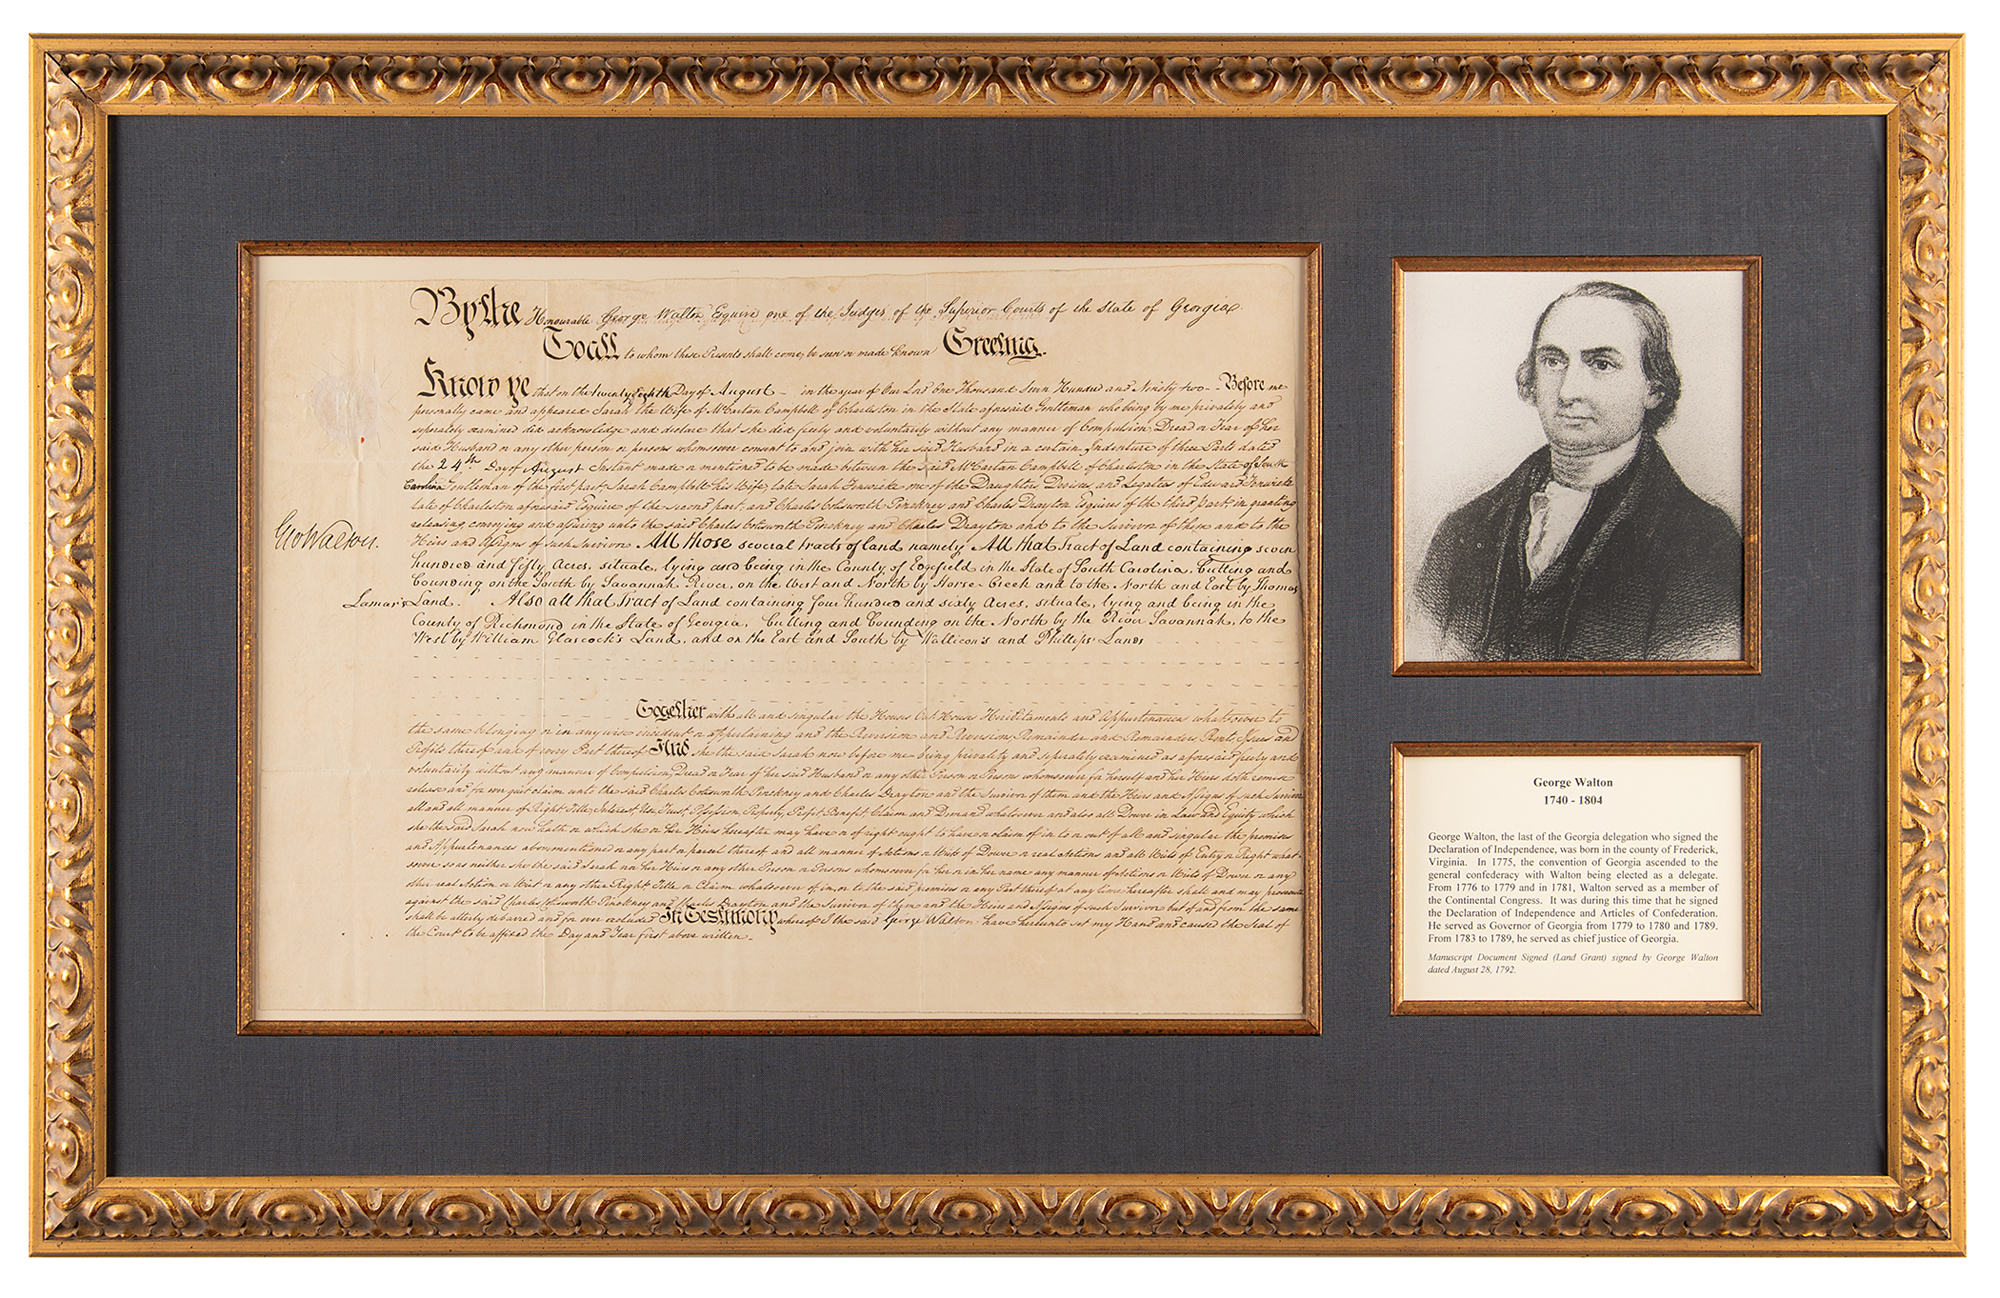 By the Honourable George Walton Esquire one of the Judges of the Superior Courts of the State of Georgia
To all to whom these Presents shall come, be seen or made known Greeting.
Know ye that on the twenty eighth Day of August - in the year of Our Lord One Thousand Seven Hundred and Ninety two - Before me
personally came and appeared Sarah the Wife of McCartan Campbell of Charleston in the State aforesaid Gentleman who being by me privately and
seperately examined did acknowledge and declare that she did freely and voluntarily without any manner of Compulsion Dread or Fear of her
said Husband or any other person or persons whomsoever consent to and join with her said Husband in a certain Indenture of three Parts dated
the 24th Day of August Instant made or mentioned to be made between the said McCartan Campbell of Charleston in the State of South
Carolina Gentleman of the first part, Sarah Campbell his Wife, late Sarah Fenwicke one of the Daughters Devisees and Legatees of Edward Fenwicke
late of Charleston aforesaid Esquire of the second part, and Charles Cotesworth Pinckney and Charles Drayton Esquires of the third part, in granting
releasing conveying and assuring unto the said Charles Cotesworth Pinckney and Charles Drayton and to the Survivor of them and to the
Heirs and Assigns of such Survivor All those several tracts of land namely, All that Tract of Land containing seven
Geo Walton.
hundred and fifty Acres, situate, lying and being in the County of Edgefield in the State of South Carolina, butting and
bounding on the South by Savannah River, on the West and North by Horse Creek and to the North and East by Thomas
Lamar's Land. Also all that Tract of Land containing four hundred and sixty Acres, situate, lying and being in the
County of Richmond in the State of Georgia, butting and bounding on the North by the River Savannah, to the
West by William Glascock's Land, and on the East and South by Wallicon's and Phillips' Lands
Together with all and singular the Houses Out Houses Hereditaments and Appurtenances whatsoever to
the same belonging or in any wise incident or appertaining and the Reversion and Reversions Remainder and Remainders, Rents, Issues and
Profits thereof and of every Part thereof And she the said Sarah now before me being privately and seperately examined as aforesaid freely and
voluntarily without any manner of Compulsion, Dread or Fear of her said Husband or any other Person or Persons whomsoever for herself and her Heirs doth remise
release and for ever quit claim unto the said Charles Cotesworth Pinckney and Charles Drayton and the Survivor of them and the Heirs and Assigns of such Survivor
all and all manner of Right Title, Interest, Use, Trust, Possession, Property, Profit Benefit, Claim and Demand whatsoever and also all Dower in Law and Equity which
she the said Sarah now hath or which she or her Heirs hereafter may have or of right ought to have or claim of in to or out of all and singular the premises
and Appurtenances abovementioned or any part or parcel thereof, and all manner of Actions or Writs of Dower or real Actions and all Writs of Entry or Right what-
soever so as neither she the said Sarah nor her Heirs or any other Person or Persons whomsoever for her or in her name any manner of Actions or Writs of Dower or any
other real Action or Writ or any other Right, Title or Claim whatsoever of in, or to the said premises or any Part thereof at any time hereafter shall and may prosecute
against the said Charles Cotesworth Pinckney and Charles Drayton and the Survivor of them and the Heirs and Assigns of such Survivor but of and from the same
shall be utterly debarred and for ever excluded In Testimony whereof I the said George Walton have hereunto set my Hand and caused the Seal of
the Court to be affixed the Day and Year first above written.
George Walton
1740 - 1804
George Walton, the last of the Georgia delegation who signed the
Declaration of Independence, was born in the county of Frederick,
Virginia. In 1775, the convention of Georgia ascended to the
general confederacy with Walton being elected as a delegate.
From 1776 to 1779 and in 1781, Walton served as a member of
the Continental Congress. It was during this time that he signed
the Declaration of Independence and Articles of Confederation.
He served as Governor of Georgia from 1779 to 1780 and 1789.
From 1783 to 1789, he served as chief justice of Georgia.
Manuscript Document Signed (Land Grant) signed by George Walton
dated August 28, 1792.